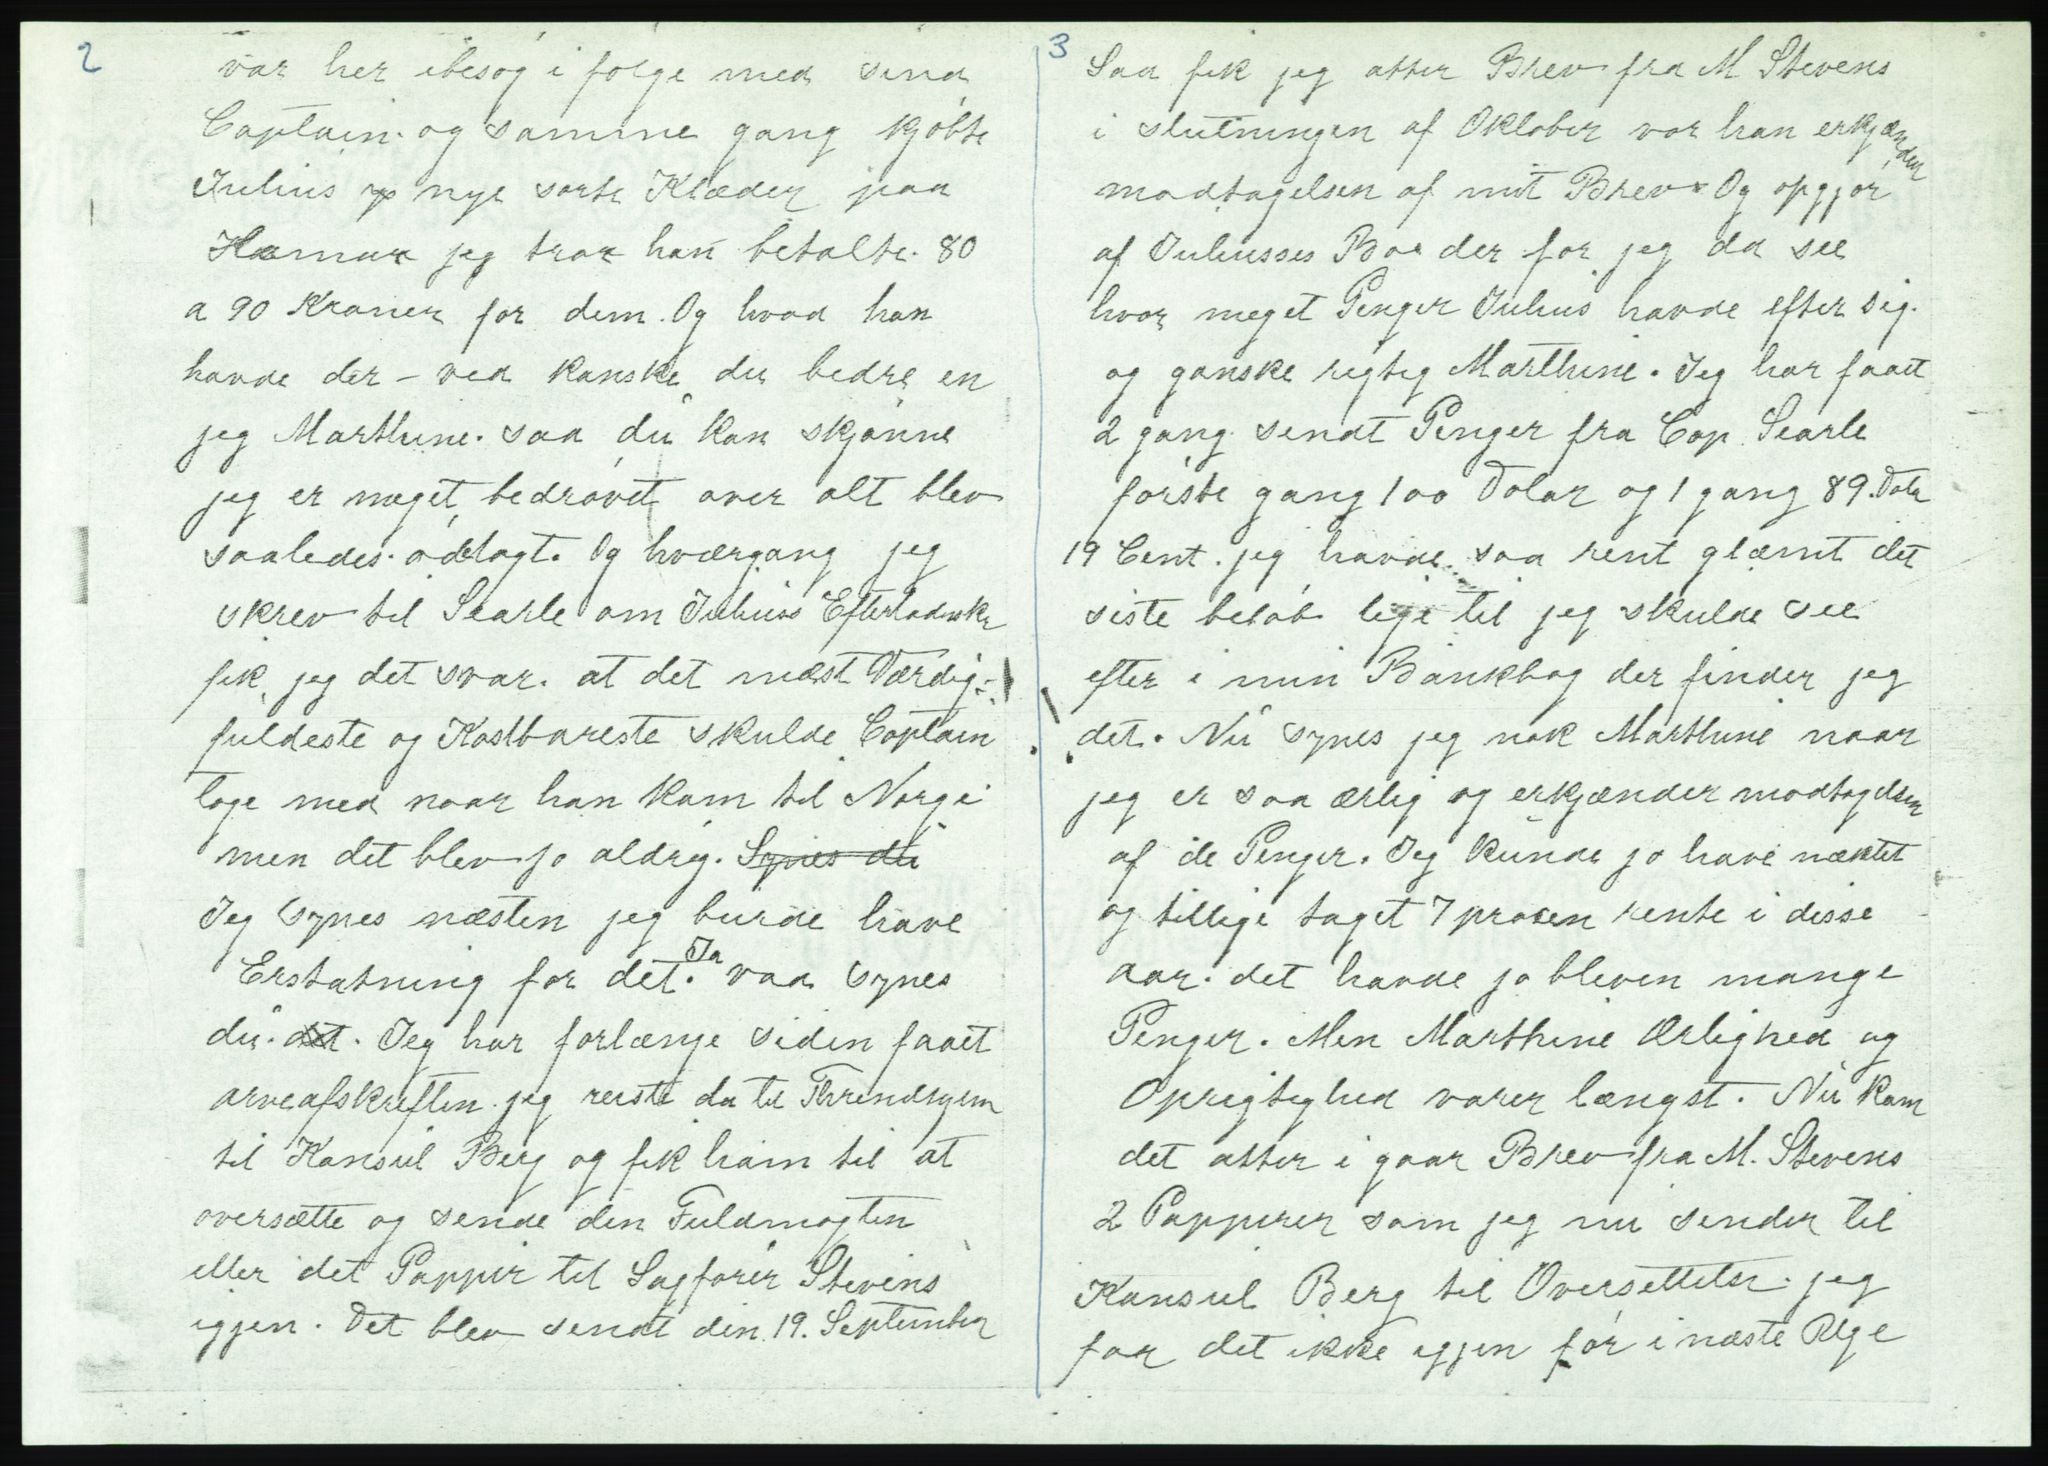 2
var her ibesøg i følge med sind
Captain. og samme gang kjøbte
Julius nye sorte Klæder paa
Hamar jeg tror han betalte. 80
a 90 Kroner for dem. Og hvad han
havde der – ved kanske du bedre en
jeg Marthine. saa du kan skjønne
jeg er meget bedrøvet over alt blev
saaledes. ødelagt. Og hværgang jeg
skrev til Searle om Juliuss Efterladenske
fik jeg det svar. at det mæst Værdig-
fuldeste og Kostbareste skulde Captain
tage med naar han kom til Norge
men det blev jo aldrig. Synes du
Jeg synes næsten jeg burde have
Erstatning for det. Ja vad synes
du. det. Jeg har forlænge siden faaet
arveafskriften. jeg reiste da til Thrindhjem
til Konsul Berg og fik ham til at
oversætte og sende den Fuldmagten
eller det Pappir til Sagfører Stevens
igjen. Det blev sendt den 19. September
3
Saa fik jeg atter Brev fra M Stevens
i slutningen af Oktober vor han erkjænder
modtagelsen af mit Brev. Og opgjør
af Juliusses Bo. der for jeg da see
hvor meget Penger Julius havde efter sig.
og ganske rigtig Marthine. Jeg har faaet
2 gang sendt Penger fra Cap. Searle
første gang 100 Dolar og 1 gang 89. Dolr
19 Cent. jeg havde saa rent glæmt det
siste beløb lige til jeg skulde see
efter i min Bankbog der finder jeg
det. Nu synes jeg nok Marthine naar
jeg er saa ærlig og erkjænder modtagelsen
af de Penger. Jeg kunde jo have næktet
og tillige taget 7 prosen rente i disse
aar. det havde jo bleven mange
Penger. Men Marthine Ærlighed og
Oprigtighed varer længst. Nu kom
det atter i gaar Brev fra M. Stevens
2 Pappirer som jeg nu sender til
Konsul Berg til Oversettelse. jeg
faar det ikke igjen før i næste Uge